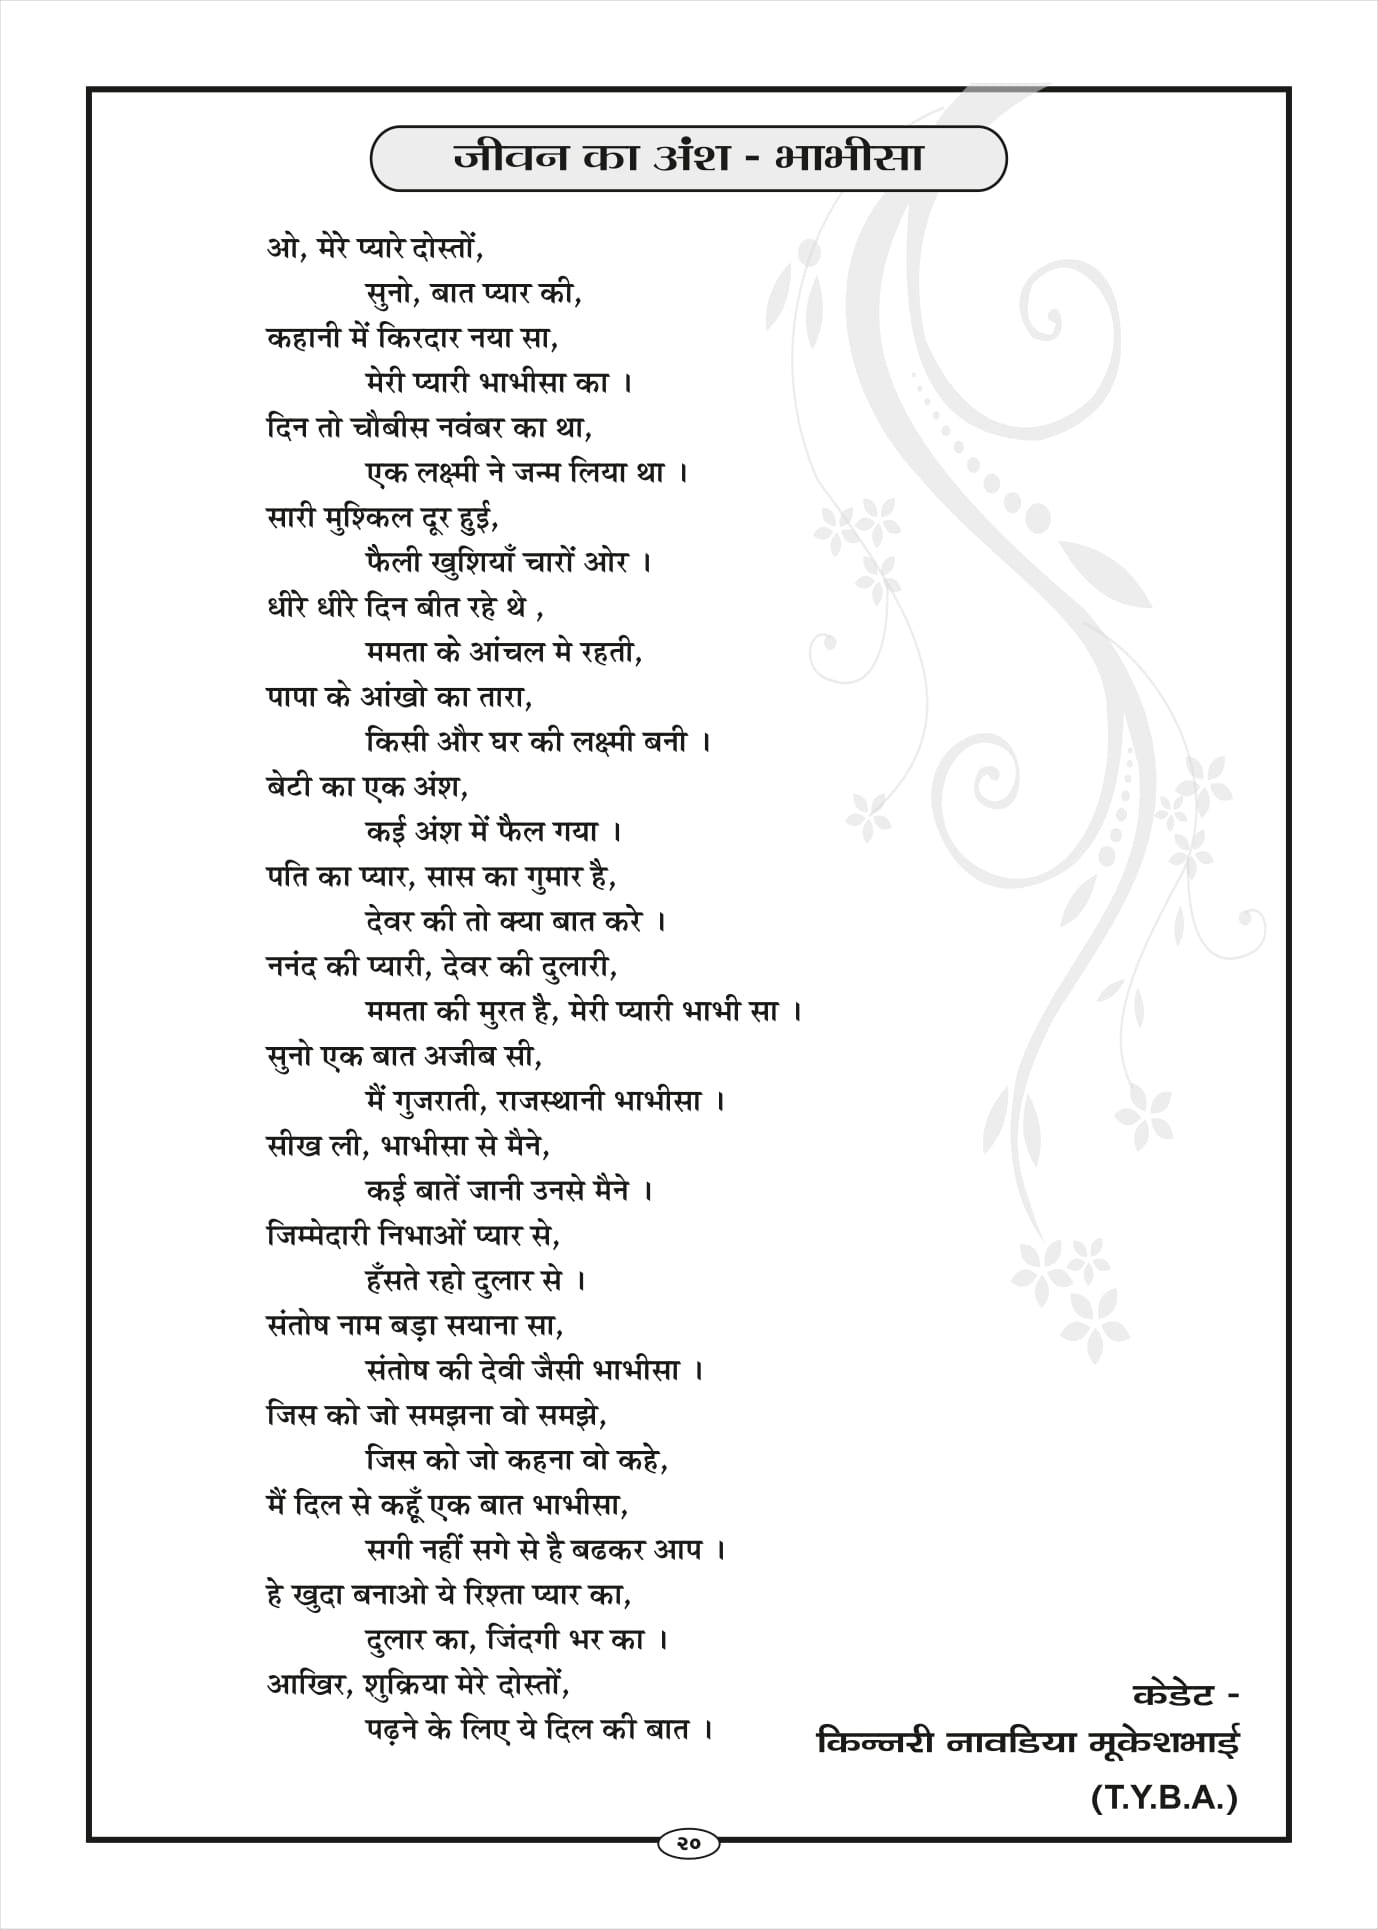 जीवन का अंश - भाभीसा
ओ, मेरे प्यारे दोस्तों,
सुनो, बात प्यार की,
कहानी में किरदार नया सा,
मेरी प्यारी भाभीसा का ।
दिन तो चौबीस नवंबर का था,
एक लक्ष्मी ने जन्म लिया था ।
सारी मुश्किल दूर हुई,
फैली खुशियाँ चारों ओर ।
धीरे धीरे दिन बीत रहे थे ,
ममता के आंचल मे रहती,
पापा के आंखो का तारा,
किसी और घर की लक्ष्मी बनी ।
बेटी का एक अंश,
कई अंश में फैल गया ।
पति का प्यार, सास का गुमार है,
देवर की तो क्या बात करे ।
ननंद की प्यारी, देवर की दुलारी,
ममता की मुरत है, मेरी प्यारी भाभी सा ।
सुनो एक बात अजीब सी,
मैं गुजराती, राजस्थानी भाभीसा ।
सीख ली, भाभीसा से मैने,
कई बातें जानी उनसे मैने ।
जिम्मेदारी निभाओं प्यार से,
हँसते रहो दुलार से ।
संतोष नाम बड़ा सयाना सा,
संतोष की देवी जैसी भाभीसा ।
जिस को जो समझना वो समझे,
जिस को जो कहना वो कहे,
मैं दिल से कहूँ एक बात भाभीसा,
सगी नहीं सगे से है बढकर आप ।
हे खुदा बनाओ ये रिश्ता प्यार का,
दुलार का, जिंदगी भर का ।
आखिर, शुक्रिया मेरे दोस्तों,
पढ़ने के लिए ये दिल की बात ।
केडेट -
किन्नरी नावडिया मूकेशभाई
(T.Y.B.A.)
२०